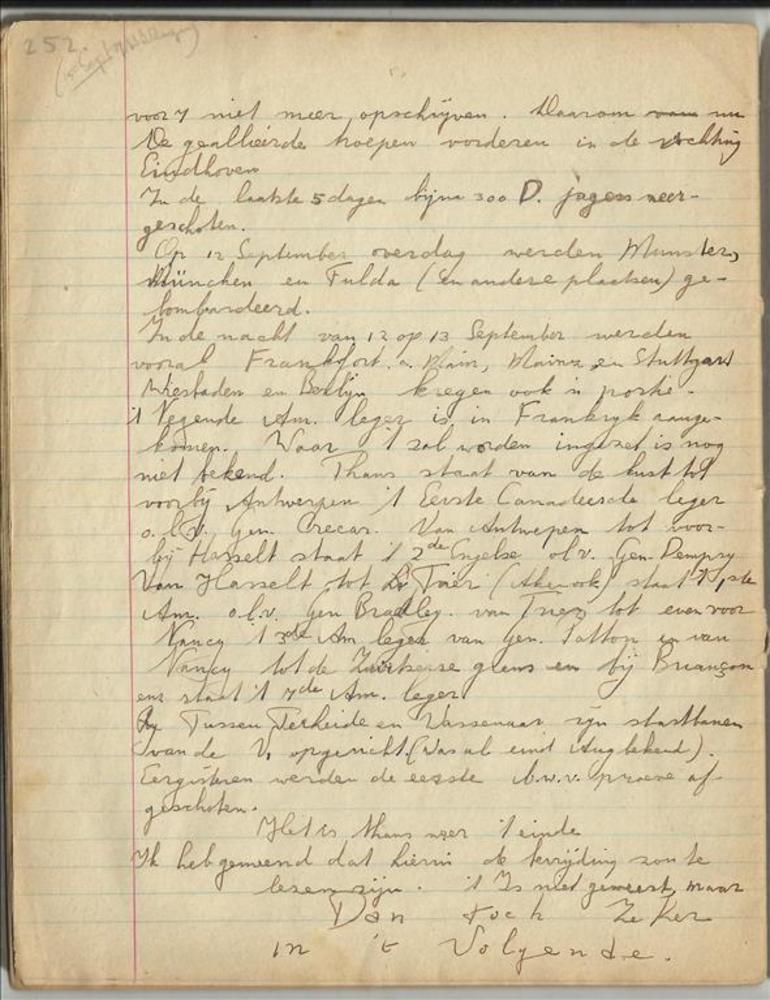 252.
voor 7 niet meer opschrijven. Daarom
De geallieerde troepen vorderen in de richting
Eindhoven
In de laatste 5 dagen bijna 300 D. jagers neer-
geschoten.
Op 12 September overdag werden Munster,
München en Fulda (en andere plaatsen) ge-
bombardeerd.
In de nacht van 12 op 13 September werden
vooral Frankfort. a. Main, Mainz en Stuttgart
Wiesbaden en Berlijn kregen ook 'n portie.
't Negende Am. leger is in Frankryk aange-
komen. Waar 't zal worden ingezet is nog
niet bekend. Thans staat van de kust tot
voorbij Antwerpen 't Eerste Canadeesde leger
o.l.v. Gen. Crerar. Van Antwerpen tot voor-
bij Hasselt staat 't 2de Engelse o.l.v. Gen. Dempsy
Van Hasselt tot Trier (Aken ook) staat 't 1ste
Am. o.l.v. Gen Bradley. van Trier tot even voor
Nancy 't 3de Am leger van Gen. Patton en van
Nancy tot de Zwitserse grens en bij Briançon
enz staat 't 7de Am. leger.
Tussen Terheide en Wassenaar zyn startbanen
van de V1 opgericht. (Was al eind Aug bekend).
Eergisteren werden de eerste b.w.v. proeve af-
geschoten.
Het is thans weer 't einde
Ik heb gemeend dat hierin de bevrijding zou te
lezen zijn. 't Is niet geweest, maar
Dan toch Zeker
in 't Volgende.